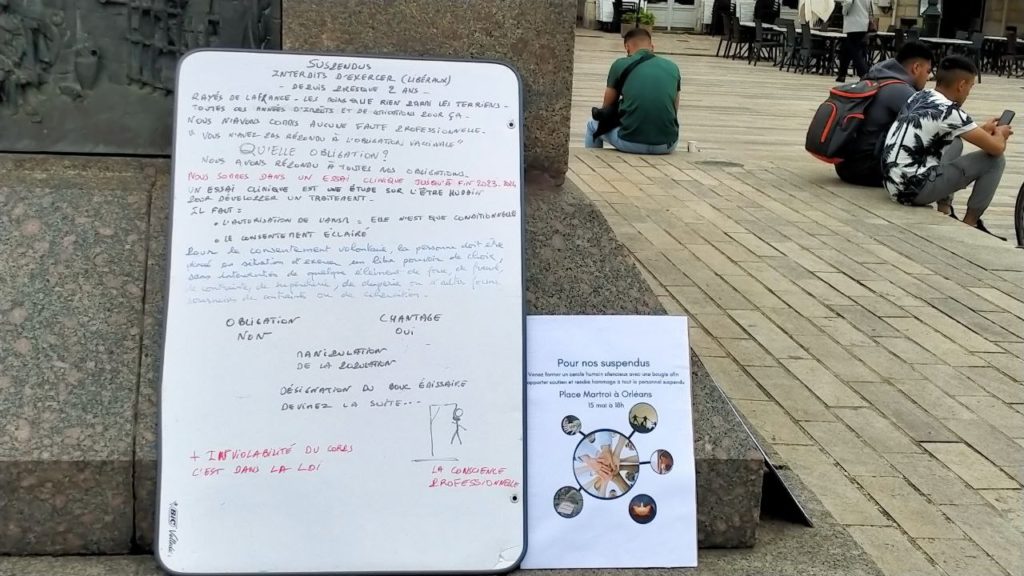 SUSPENDUS
INTERDITS D'EXERCER (LIBÉRAUX)
- DEPUIS PRESQUE 2 ANS -
RAYÉS DE LA FRANCE - LES MOINS QUE RIEN PARMI LES TERRIENS -
TOUTES CES ANNÉES D'IMPÔTS ET DE COTISATIONS POUR ÇA -
NOUS N'AVONS COMMIS AUCUNE FAUTE PROFESSIONNELLE -
" VOUS N'AVEZ PAS RÉPONDU À L'OBLIGATION VACCINALE "
QU'ELLE OBLIGATION ?
NOUS AVONS RÉPONDU À TOUTES NOS OBLIGATIONS.
NOUS SOMMES DANS UN ESSAI CLINIQUE JUSQU'À FIN 2023-2024
UN ESSAI CLINIQUE EST UNE ÉTUDE SUR L'ÊTRE HUMAIN
POUR DÉVELOPPER UN TRAITEMENT -
IL FAUT :
• L'AUTORISATION DE L'ANSM : ELLE N'EST QUE CONDITIONNELLE
• LE CONSENTEMENT ÉCLAIRÉ
Pour le consentement volontaire, la personne doit être
placé en situation d'exercer un libre pouvoir de choix,
sans intervention de quelque élément de force, de fraude,
de contrainte, de supercherie, de duperie ou d'autres formes
sournoises de contrainte ou de coercition.
OBLIGATION CHANTAGE
NON OUI
MANIPULATION
DE LA POPULATION
DÉSIGNATION DU BOUC ÉMISSAIRE
DEVINEZ LA SUITE ...
+ INVIOLABILITÉ DU CORPS
C'EST DANS LA LOI
LA CONSCIENCE
PROFESSIONNELLE
BIC Velleda
Pour nos suspendus
Venez former un cercle humain silencieux avec une bougie afin
d'apporter soutien et rendre hommage à tout le personnel suspendu
Place Martroi à Orléans
15 mai à 18h